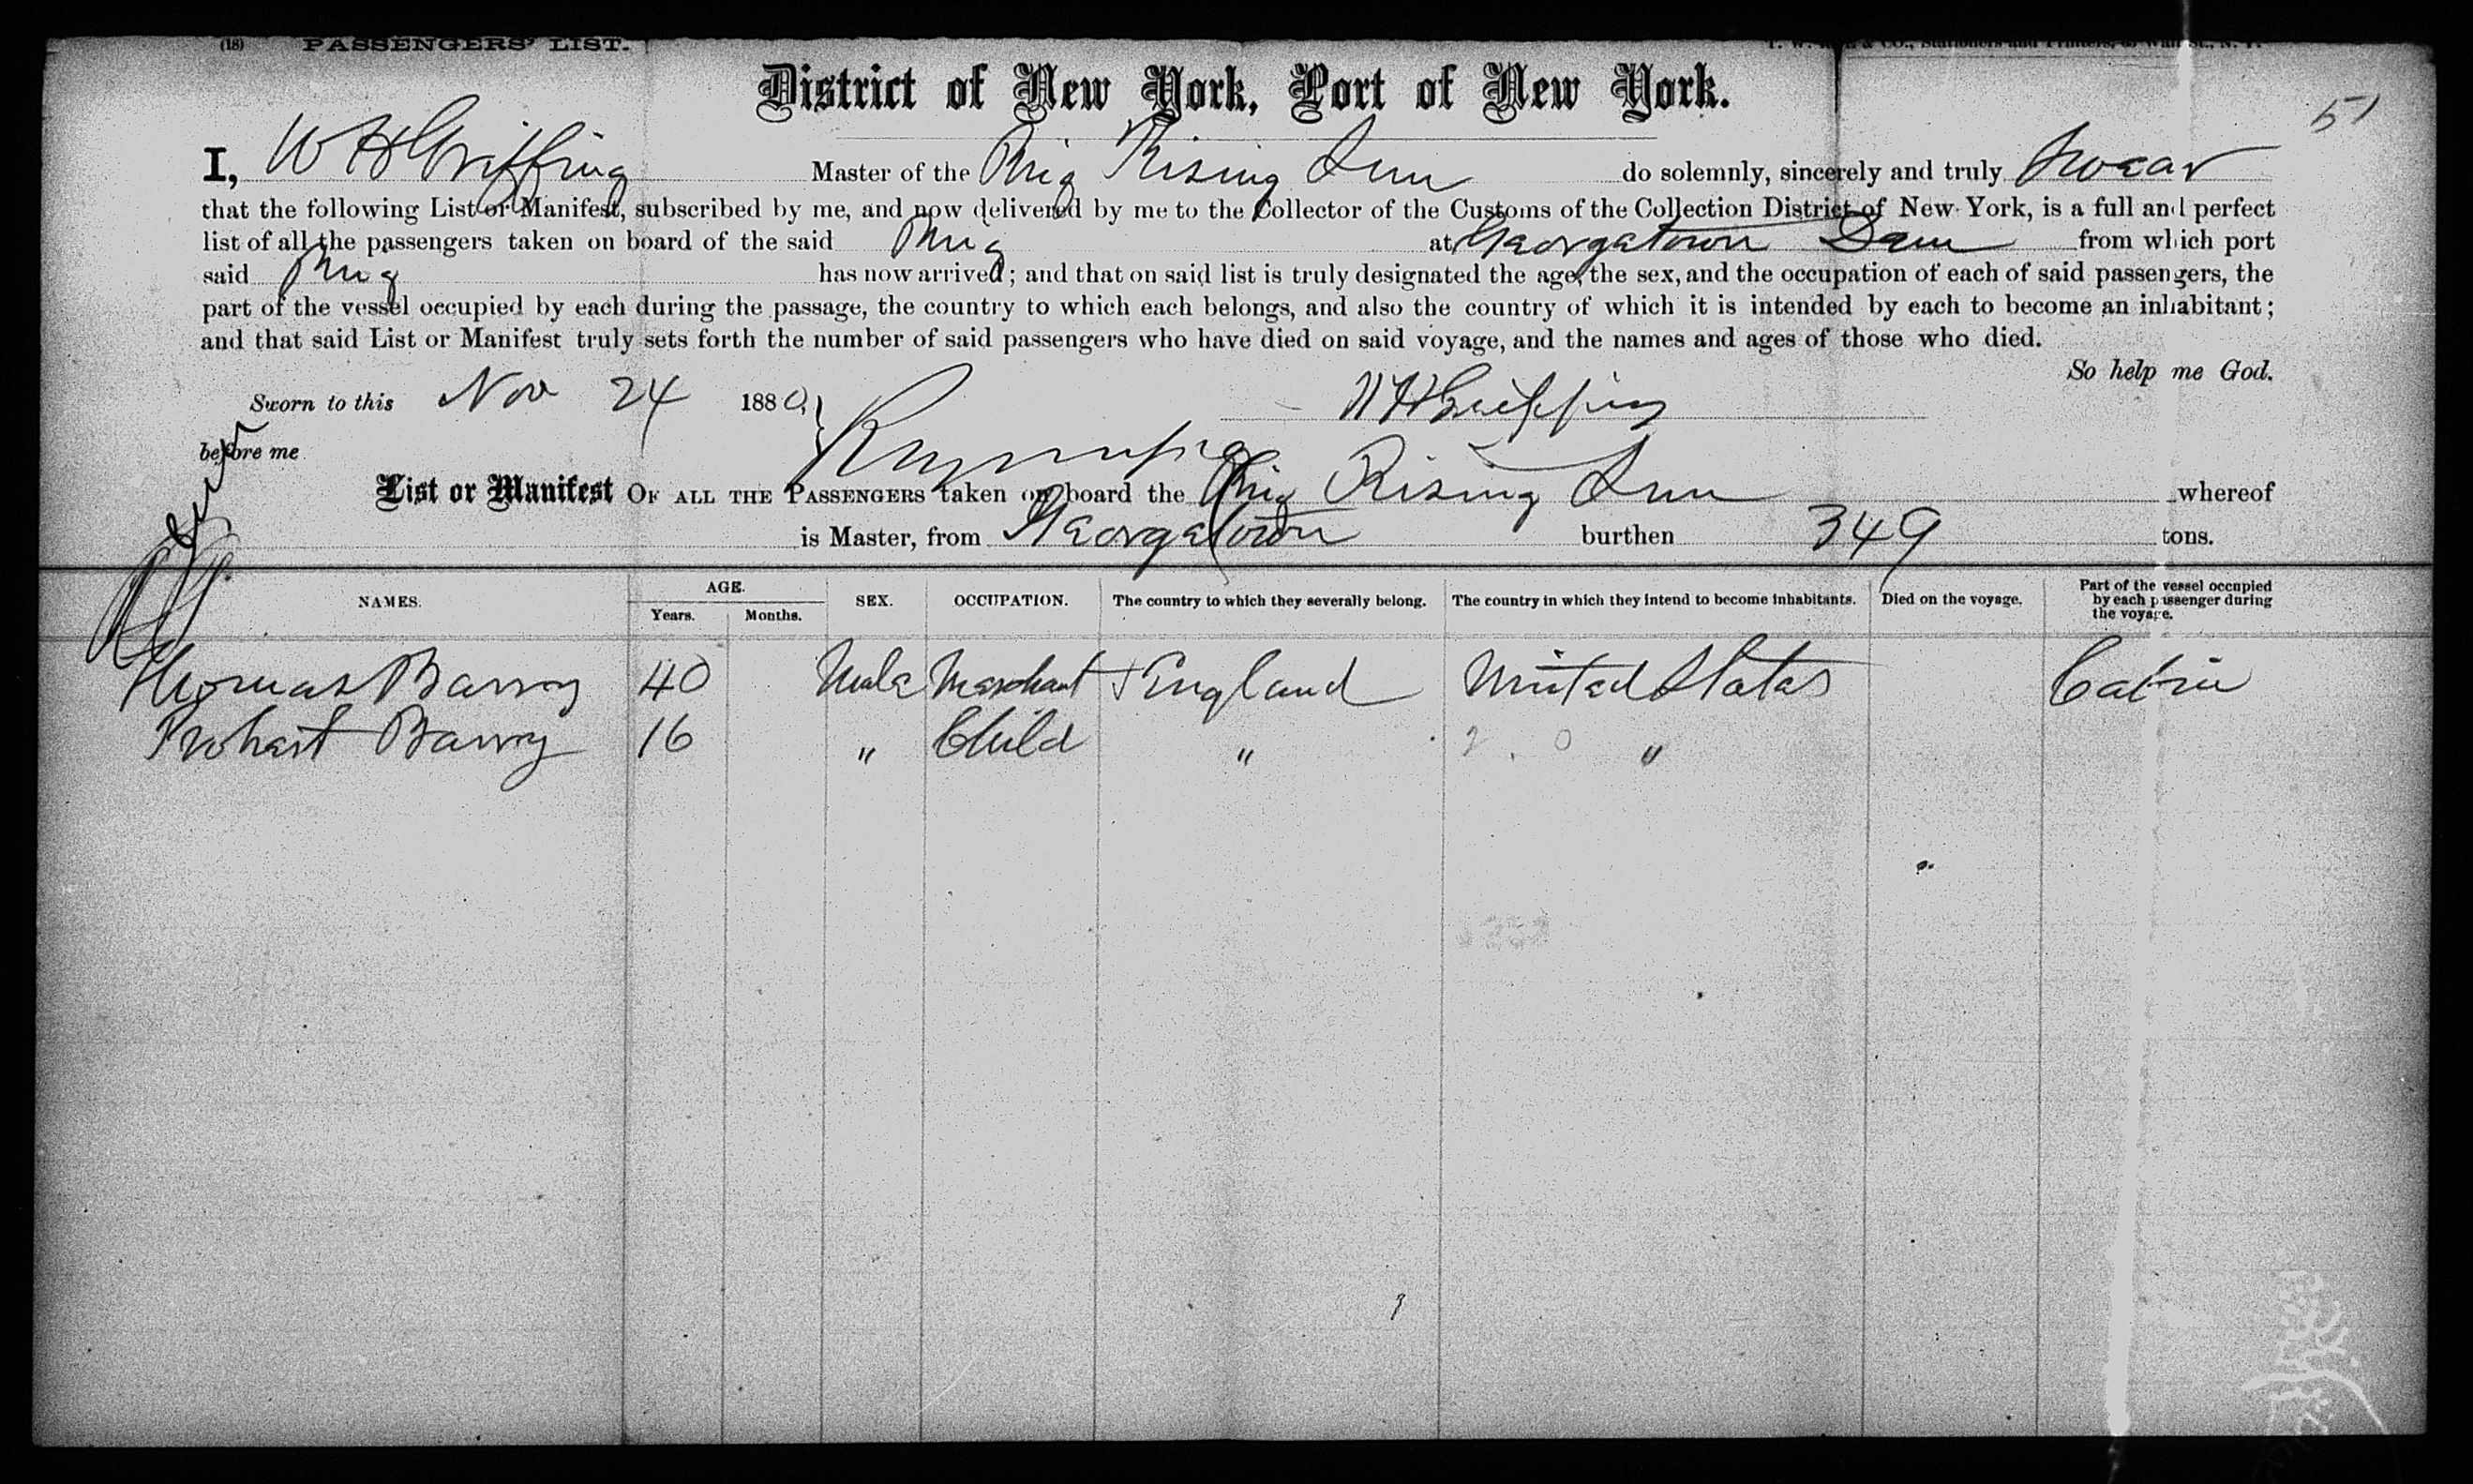 (18) PASSENGERS' LIST.
District of New York, Port of New York.
51
I, W H Griffing Master of the Brig Rising Sun do solemnly, sincerely and truly Swear
that the following List or Manifest, subscribed by me, and now delivered by me to the Collector of the Customs of the Collection District of New York, is a full and perfect
list of all the passengers taken on board of the said Brig at Georgetown Dem from which port
said Brig has now arrived; and that on said list is truly designated the age, the sex, and the occupation of each of said passengers, the
part of the vessel occupied by each during the passage, the country to which each belongs, and also the country of which it is intended by each to become an inhabitant;
and that said List or Manifest truly sets forth the number of said passengers who have died on said voyage, and the names and ages of those who died.
So help me God.
Sworn to this Nov 24 1880, W H Griffing
before me
List or Manifest OF ALL THE PASSENGERS taken on board the Brig Rising Sun whereof
is Master, from Georgetown burthen 349 tons.
NAMES. AGE. Years. Months. SEX. OCCUPATION. The country to which they severally belong. The country in which they intend to become inhabitants. Died on the voyage. Part of the vessel occupied by each passenger during the voyage.
Thomas Barry 40 Male Merchant England United States Cabin
Barry 16 " Child " "